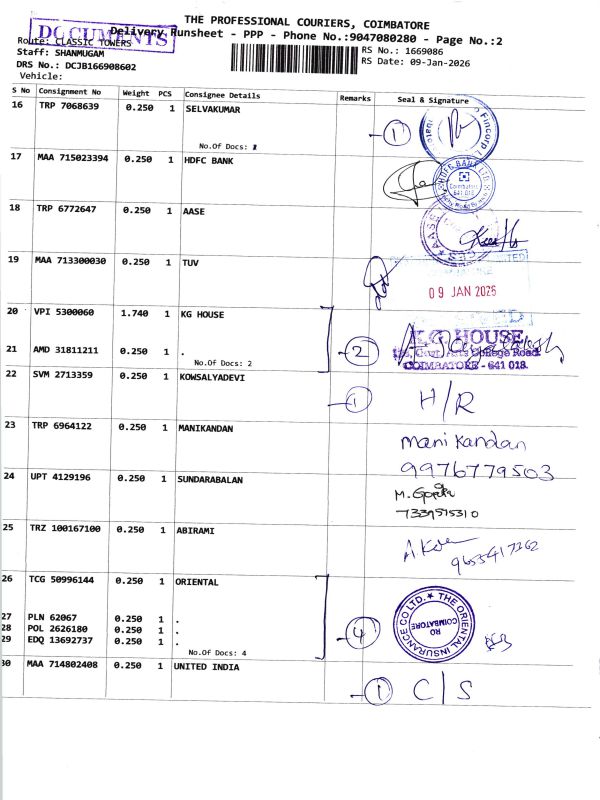 THE PROFESSIONAL COURIERS, COIMBATORE
DOCUMENTS
Delivery Runsheet - PPP - Phone No.:9047080280 - Page No.:2
Route: CLASSIC TOWERS
Staff: SHANMUGAM
RS No.: 1669086
DRS No.: DCJB166908602
RS Date: 09-Jan-2026
Vehicle:
S No Consignment No Weight PCS Consignee Details Remarks Seal & Signature
16 TRP 7068639 0.250 1 SELVAKUMAR
No.Of Docs: 1
1
Fincorp
17 MAA 715023394 0.250 1 HDFC BANK
HDFC BANK LTD
Coimbatore
641 018
18 TRP 6772647 0.250 1 AASE
AASE
19 MAA 713300030 0.250 1 TUV
09 JAN 2026
20 VPI 5300060 1.740 1 KG HOUSE
K.G. HOUSE
21 AMD 31811211 0.250 1 .
No.Of Docs: 2
2
Govt. Arts College Road
COIMBATORE - 641 018.
22 SVM 2713359 0.250 1 KOWSALYADEVI
1 H/R
23 TRP 6964122 0.250 1 MANIKANDAN
Manikandan
9976779503
24 UPT 4129196 0.250 1 SUNDARABALAN
M. Gopika
7339515310
25 TRZ 100167100 0.250 1 ABIRAMI
26 TCG 50996144 0.250 1 ORIENTAL
THE ORIENTAL INSURANCE CO LTD.
RO
COIMBATORE
27 PLN 62067 0.250 1 .
28 POL 2626180 0.250 1 .
29 EDQ 13692737 0.250 1 .
No.Of Docs: 4
4
30 MAA 714802408 0.250 1 UNITED INDIA
1 C/S